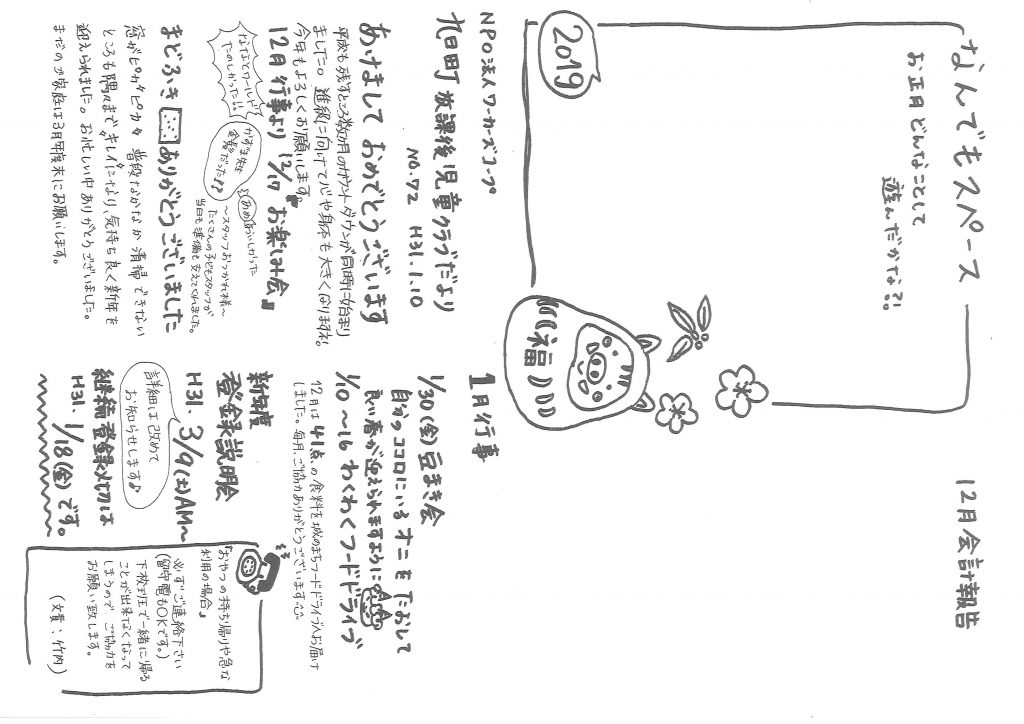 なんでもスペース
お正月どんなことして
遊んだかな?!
2019
福
12月会計報告
NPO法人ワーカーズコープ
九日町放課後児童クラブだより
NO.72 H31.1.10
あけまして おめでとうございます
平成も残すところ数か月のカウントダウンが同時に始まり
ました。進級に向けて心や身体も大きくなりますね!
今年もよろしくお願いします。
12月行事より 12/17 お楽しみ会』
なぞなぞワールド
たのしかった!!
かずま先生
最高だった♪♪
あめおいしかった
~スタッフおつかれ様~
たくさんの子どもスタッフが
当日も準備も支えてくれました。
まどふき ありがとうございました
窓がピカ々ピカ々 普段なかなか清掃できない
ところも隅々まで“キレイ”になり、気持ち良く新年を
迎えられました。お忙しい中ありがとうございました。
まだのご家庭は3月年度末にお願いします。
1月行事
1/30(金)豆まき会
自分のココロにいるオニをたおして
良い春が迎えられますように
1/10~16 わくわくフードドライブ
12月は41点の食料を城のまちフードドライブへお届け
しました。毎月、ご協力ありがとうございます
新年度
登録説明会
H31. 3/9(土)AM~
詳細は改めて
お知らせします♪
継続登録〆切は
H31. 1/18(金)です。
『おやつの持ち帰りや急な
利用の場合』
必ずご連絡下さい
(留守電もOKです。)
下校班で一緒に帰る
ことが出来なくなって
しまうので ご協力を
お願い致します。
(文責:竹内)